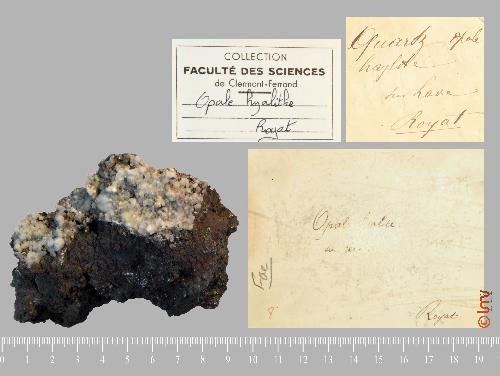 COLLECTION
FACULTÉ DES SCIENCES
de Clermont-Ferrand
Opale hyalithe
Royat
Quartz opale
hyalite
sur Lave
Royat
Opal
Royat
Fac
8
0 1 2 3 4 5 6 7 8 9 10 11 12 13 14 15 16 17 18 19